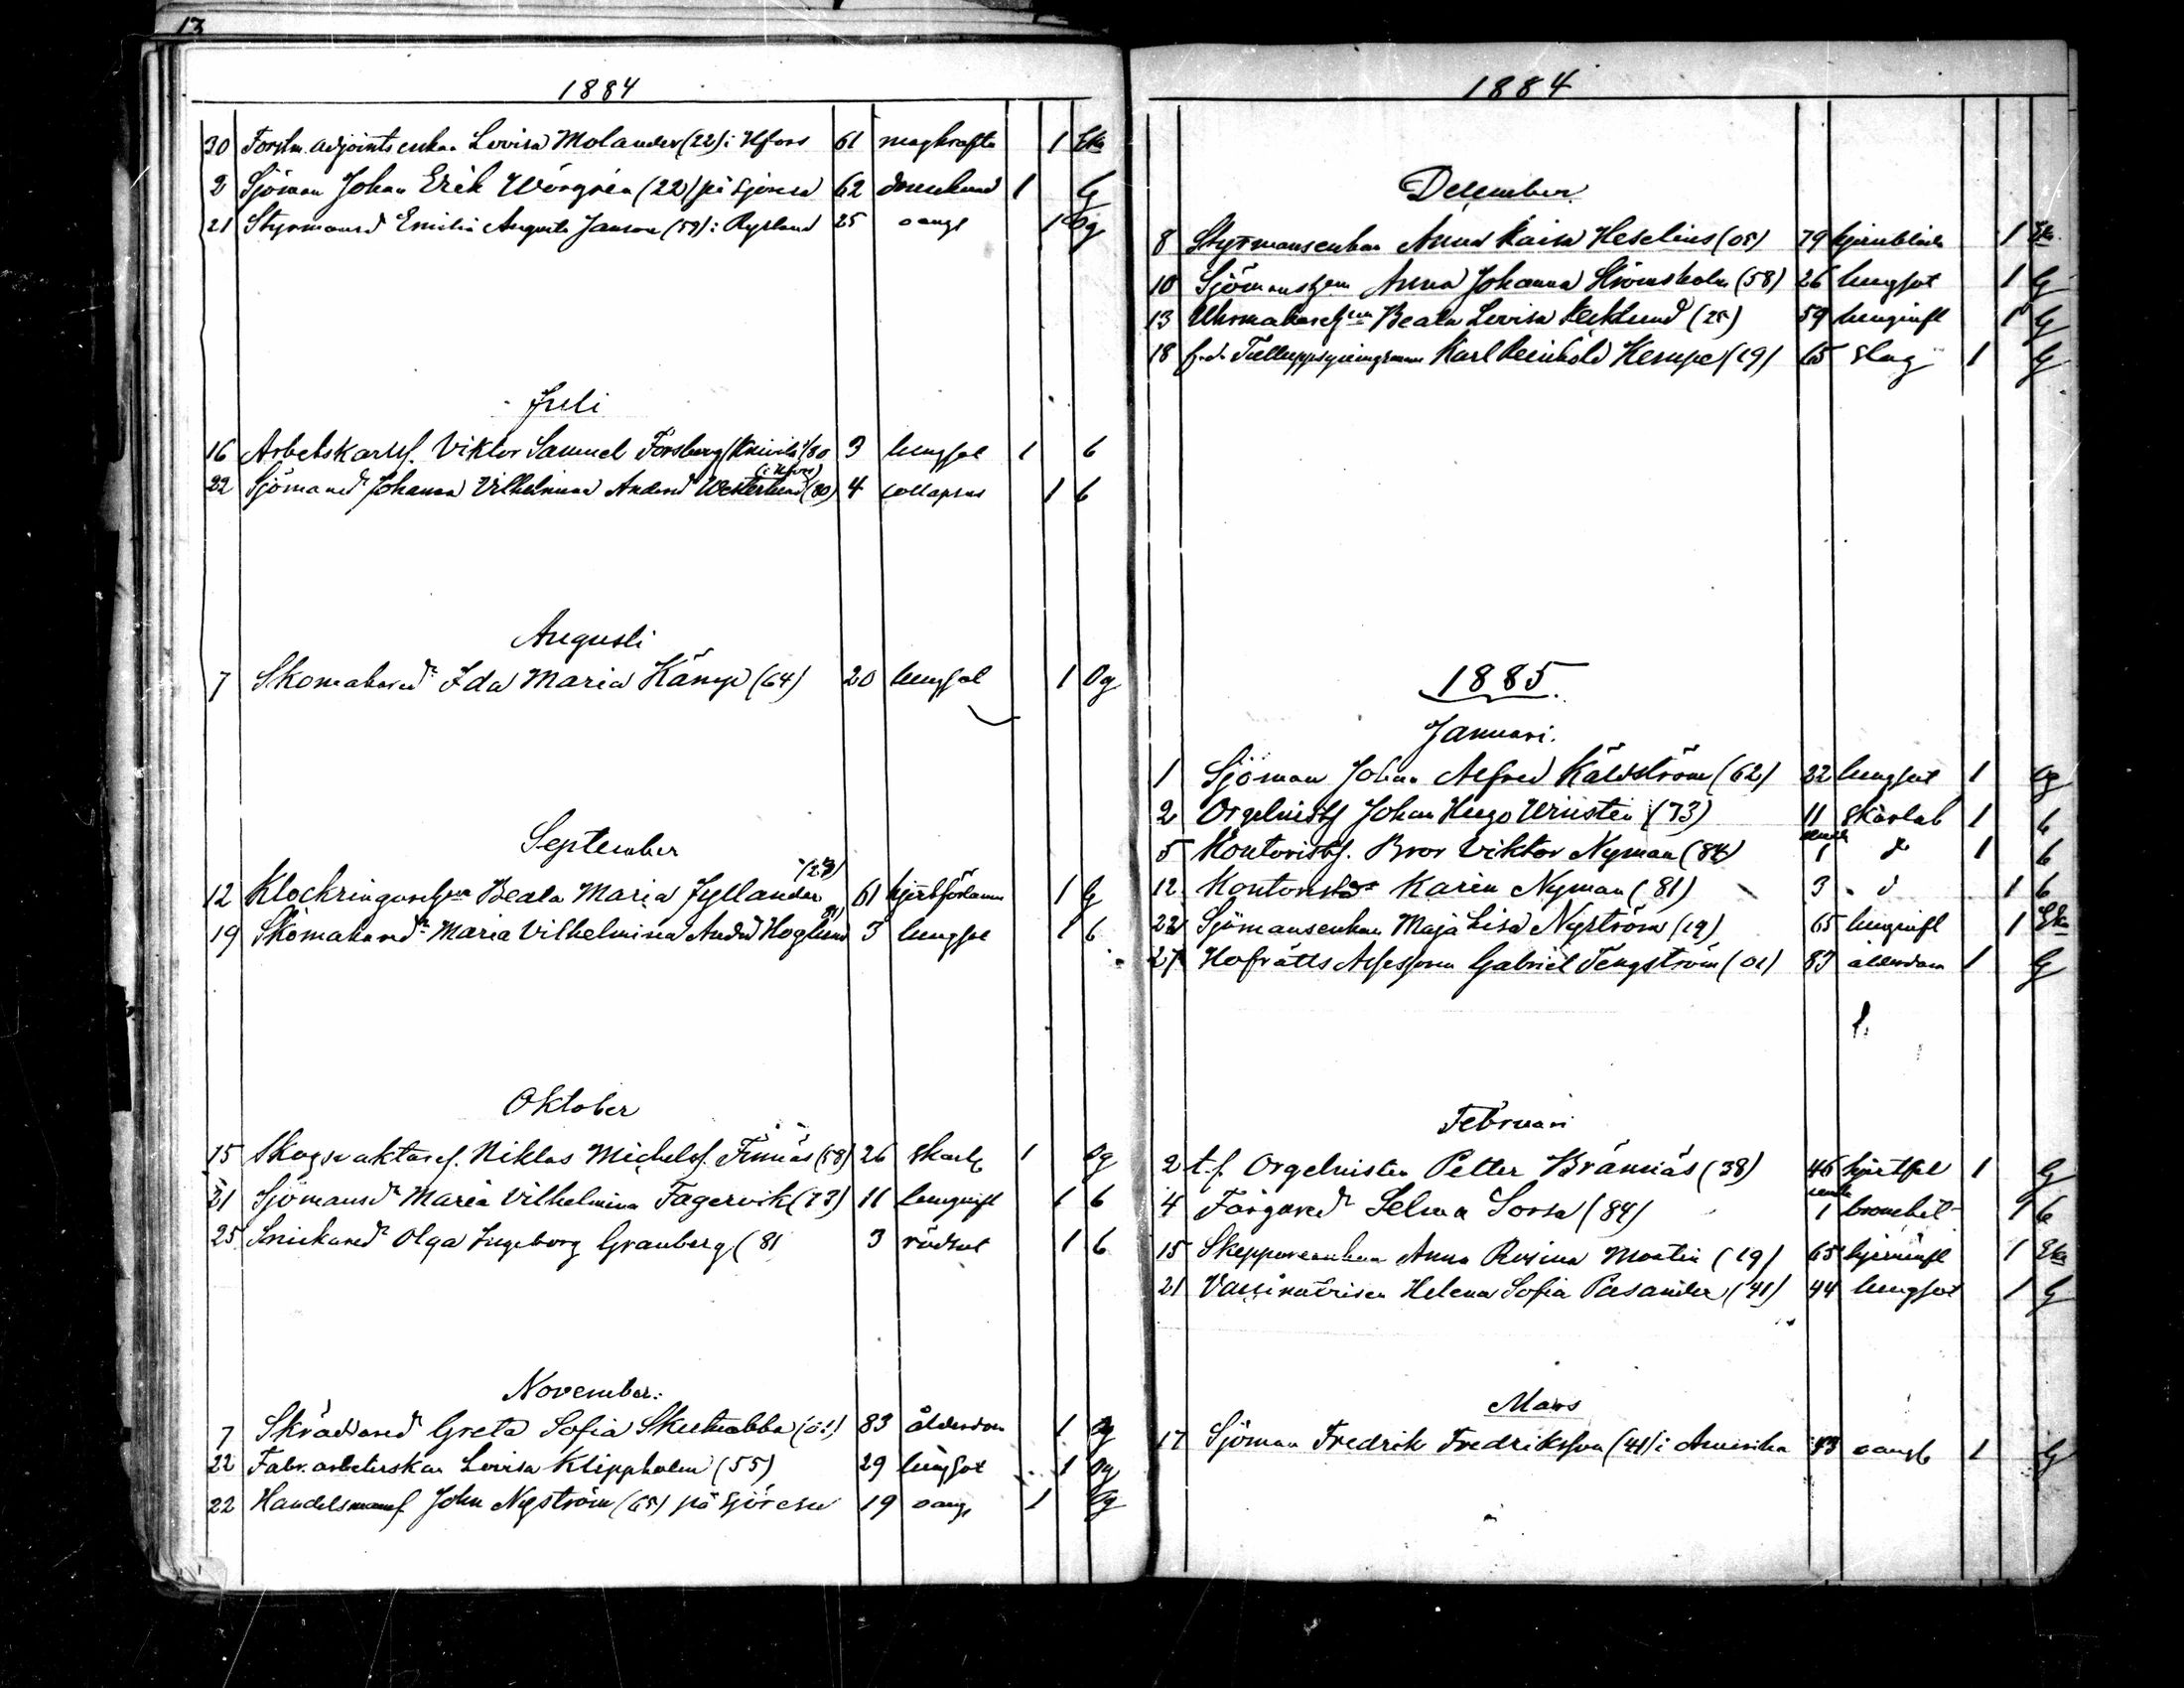 13
1884
30 Forstm. adjointsenkan Lovisa Molander (22) i Hfors 61 magkräfta 1 Eka
2 Sjöman Johan Erik (22) på sjöresa 62 1 G
21 Styrmansd Emilia Augusta Janson (59) i Ryssland 25 oangf 1 Og
Juli
16 Arbetskarlsf. Viktor Samuel Forsberg 80 3 lungsot 1 b
(i Hfors)
22 Sjömansd Johanna Vilhelmina Andersd Westerlund (80) 4 collapsus 1 b
Augusti
7 Skomakared Ida Maria Kämp (64) 20 lungsot 1 Og
September
(23)
12 Klockringarehn Beata Maria Jyllander 61 hjertförlamn 1 G
81)
19 Skomakared Maria Vilhelmina Andsd Hoglund 3 lungsot 1 b
Oktober
15 Skogsvaktaref. Niklas Michelsf. Finnäs (58) 26 skarlf 1 Og
21 Sjömansd Maria Vilhelmina Fagervik (73) 11 lunginfl 1 b
25 Snickared Olga Ingeborg Granberg (81 3 rödsot 1 b
November.
7 Skräddared Greta Sofia Skutnabba (01) 83 ålderdom 1 Og
22 Fabr. arbeterskan Lovisa Klippholm (55) 29 lungsot 1 Og
22 Handelsmansf John Nyström (65) på sjöresa 19 oangf 1 Og
1884
December
8 Styrmansenkan Anna Kaisa Heselius (05) 79 1 Eka
10 Sjömanshn Anna Johanna Strömsholm (58) 26 lungsot 1 G
13 Uhrmakarehn Beata Lovisa (25) 59 lunginfl 1 G
18 f.d. Tulluppsyningsman Karl Reinhold Kempe (19) 65 slag 1 G
1885.
Januari.
1 Sjöman Johan Alfred Källström (62) 22 lungsot 1 Og
2 Orgelnistf Johan Hugo (73) 11 skarlak 1 b
5 Kontoristf. Bror Viktor Nyman (84) 1 do 1 b
12 Kontoristd Karin Nyman (81) 3 d 1 b
22 Sjömansenkan Maja Lisa Nyström (19) 65 lunginfl 1 Eka
27 Hofrätts Assessorn Gabriel Tengström (01) 83 ålderdom 1 G
Februari
2 t.f. Orgelnisten Petter Brännäs (38) 46 hjertfel 1 G
4 Färgared Selma Sorsa (84) 1 bronchit 1 b
15 Skeppareenkan Anna Rosina Montin (19) 65 1 Eka
21 Vaccinatrisen Helena Sofia (41) 44 lungsot 1 G
Mars
17 Sjöman Fredrik Fredriksson (41) i Amerika 43 oangf 1 G